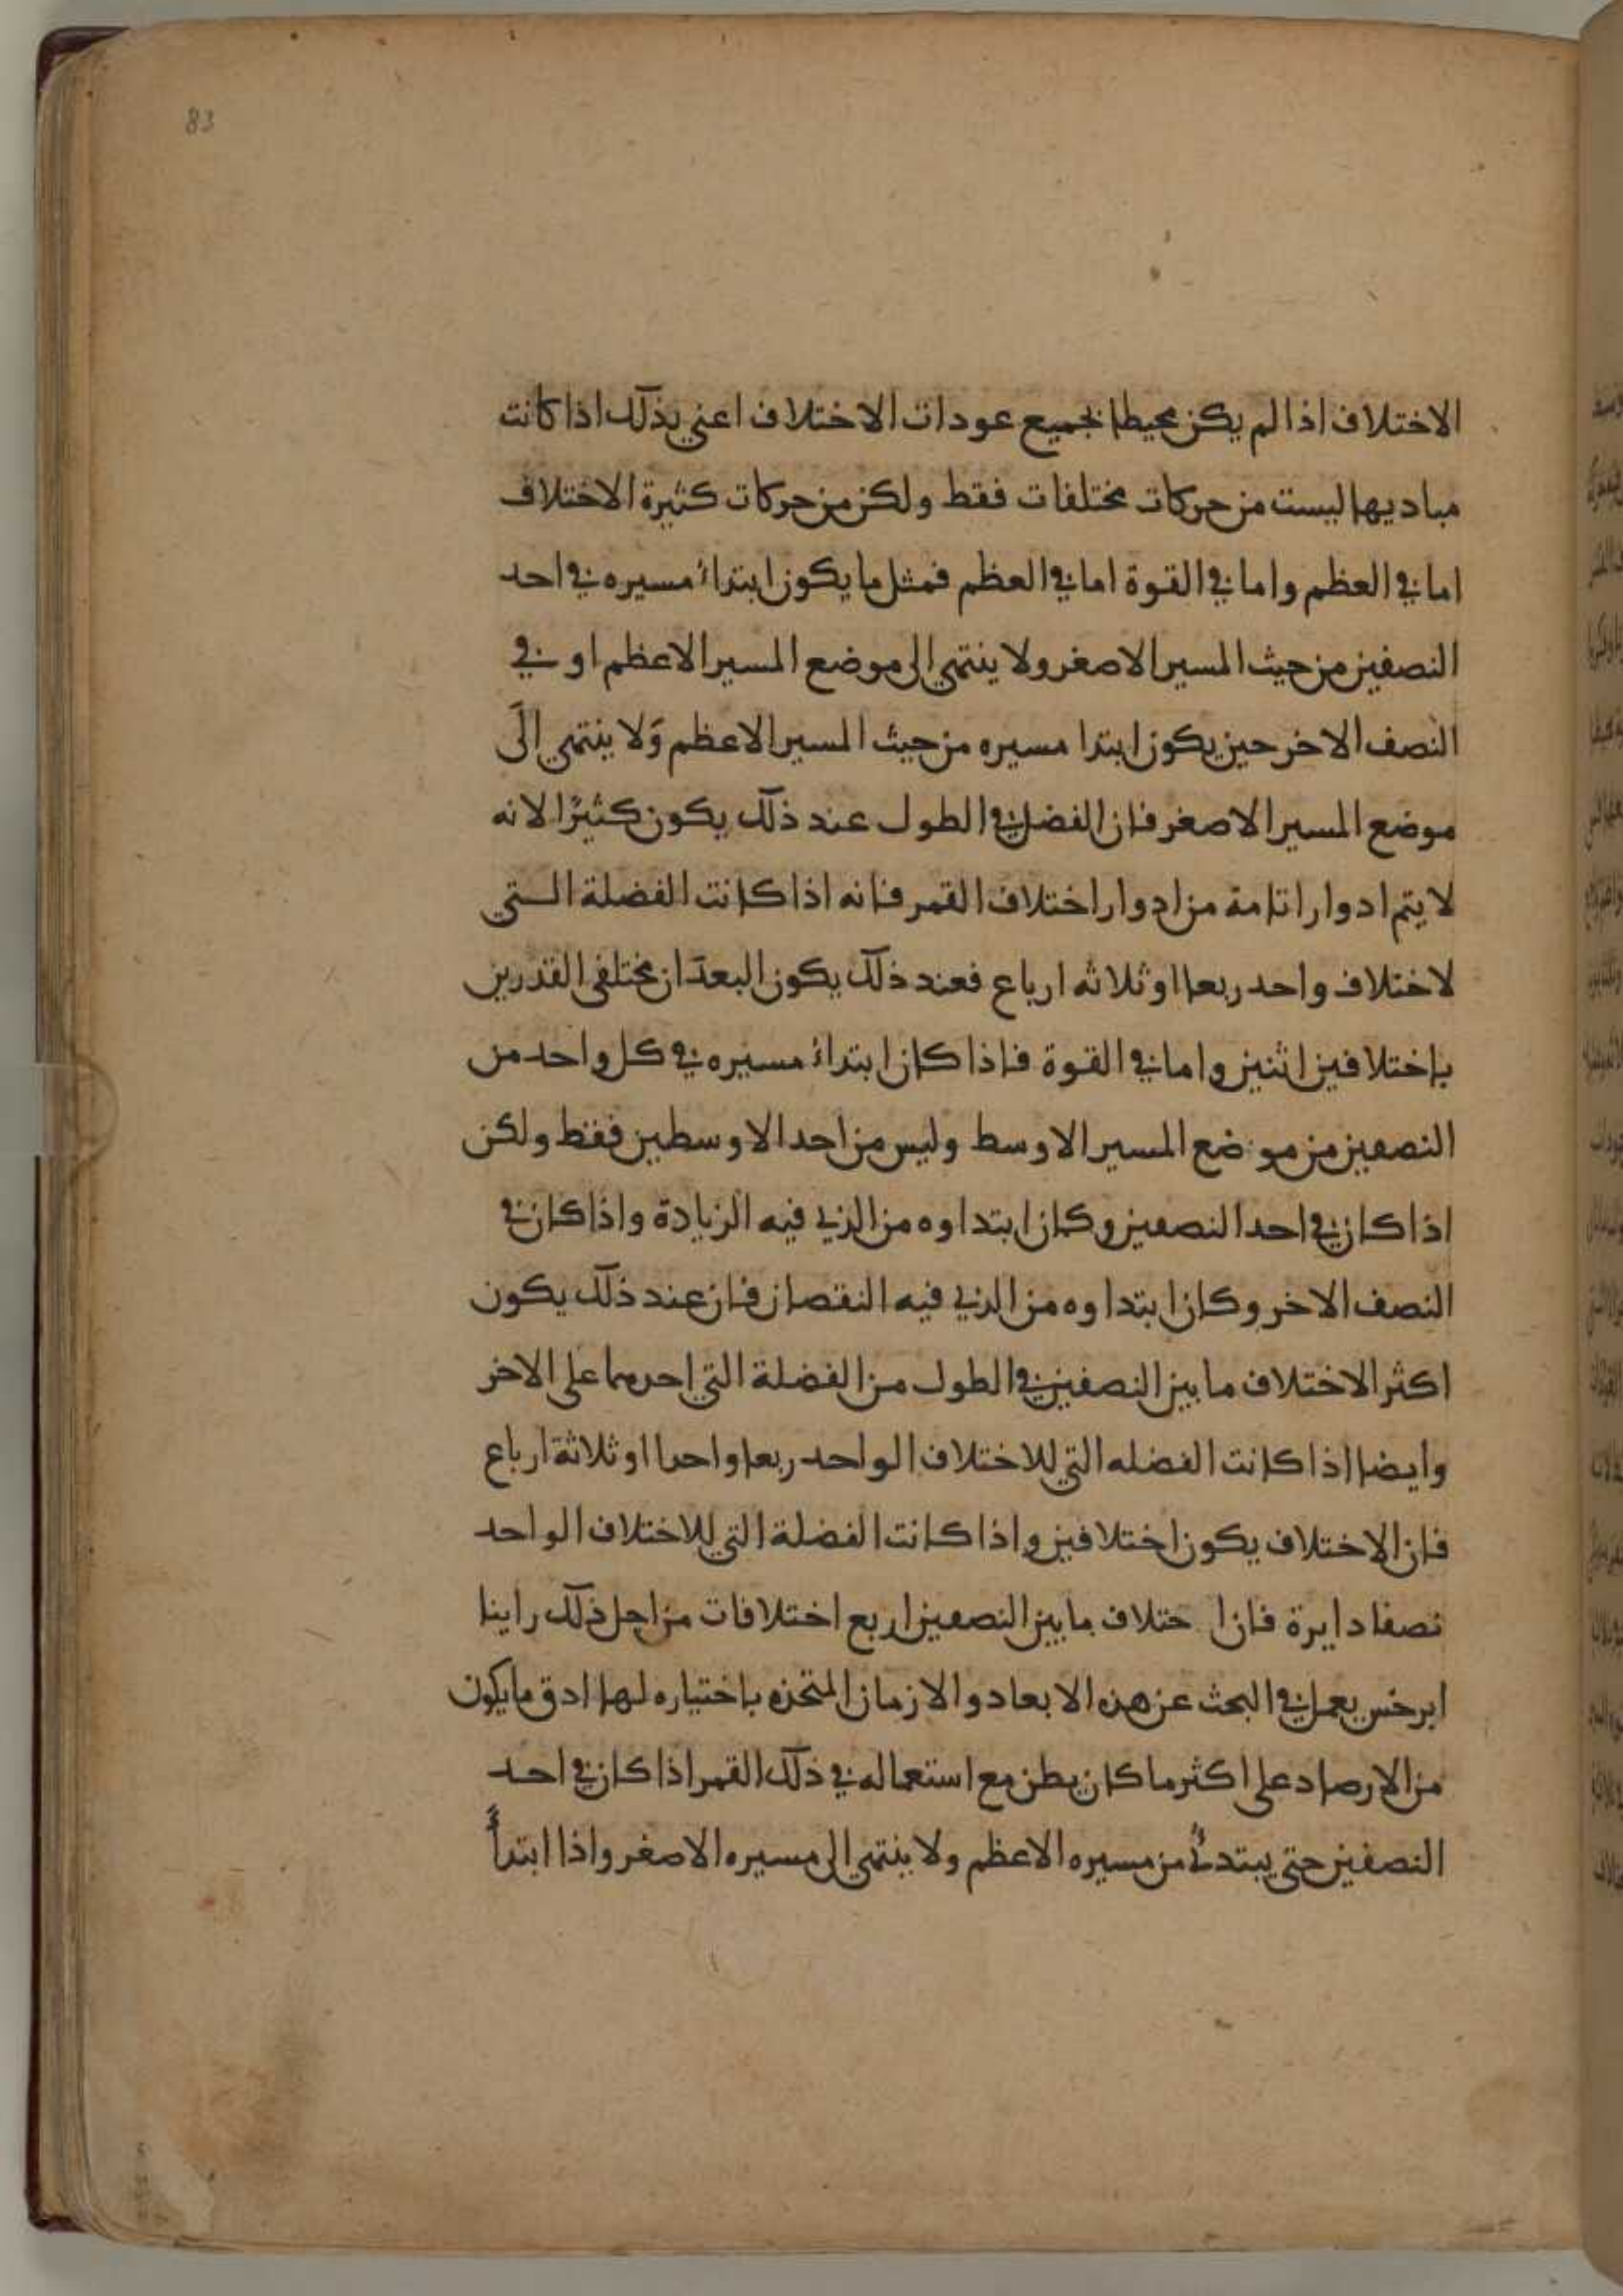 83
الاختلاف اذا لم يكن محيطا بجميع عودات الاختلاف اعني بذلك اذا كانت
مباديها ليست من حركات مختلفات فقط ولكن من حركات كثيرة الاختلاف
اما في العظم واما في القوة اما في العظم فمثل ما يكون ابتداء مسيره في احد
النصفين من حيث المسير الاصغر ولا ينتهي الى موضع المسير الاعظم او في
النصف الاخر حين يكون ابتدا مسيره من حيث المسير الاعظم ولا ينتهي الى
موضع المسير الاصغر فان الفضل في الطول عند ذلك يكون كثيرًا لانه
لا يتم ادوارا تامة من ادوار اختلاف القمر فانه اذا كانت الفضلة الـتي
لاختلاف واحد ربعا او ثلاثه ارباع فعند ذلك يكون البعدان مختلفي القدرين
باختلافين اثنين واما في القوة فاذا كان ابتداء مسيره في كل واحد من
النصفين من موضع المسير الاوسط وليس من احد الاوسطين فقط ولكن
اذا كان في احد النصفين وكان ابتداوه من الذي فيه الزيادة واذا كان في
النصف الاخر وكان ابتداوه من الذي فيه النقصان فان عند ذلك يكون
اكثر الاختلاف ما بين النصفين في الطول من الفضلة التي احدهما على الاخر
وايضا اذا كانت الفضله التي للاختلاف الواحد ربعا واحدا او ثلاثة ارباع
فان الاختلاف يكون اختلافين واذا كانت الفضلة التي للاختلاف الواحد
نصفا دايرة فان ا ختلاف ما بين النصفين اربع اختلافات من اجل ذلك راينا
ابرخس يعمل في البحث عن هذه الابعاد والازمان المتخذه باختياره لها ادق ما يكون
من الارصاد على اكثر ما كان يظن مع استعماله في ذلك القمر اذا كان في احد
النصفين حتى يبتدئ من مسيره الاعظم ولا ينتهي الى مسيره الاصغر واذا ابتدأ